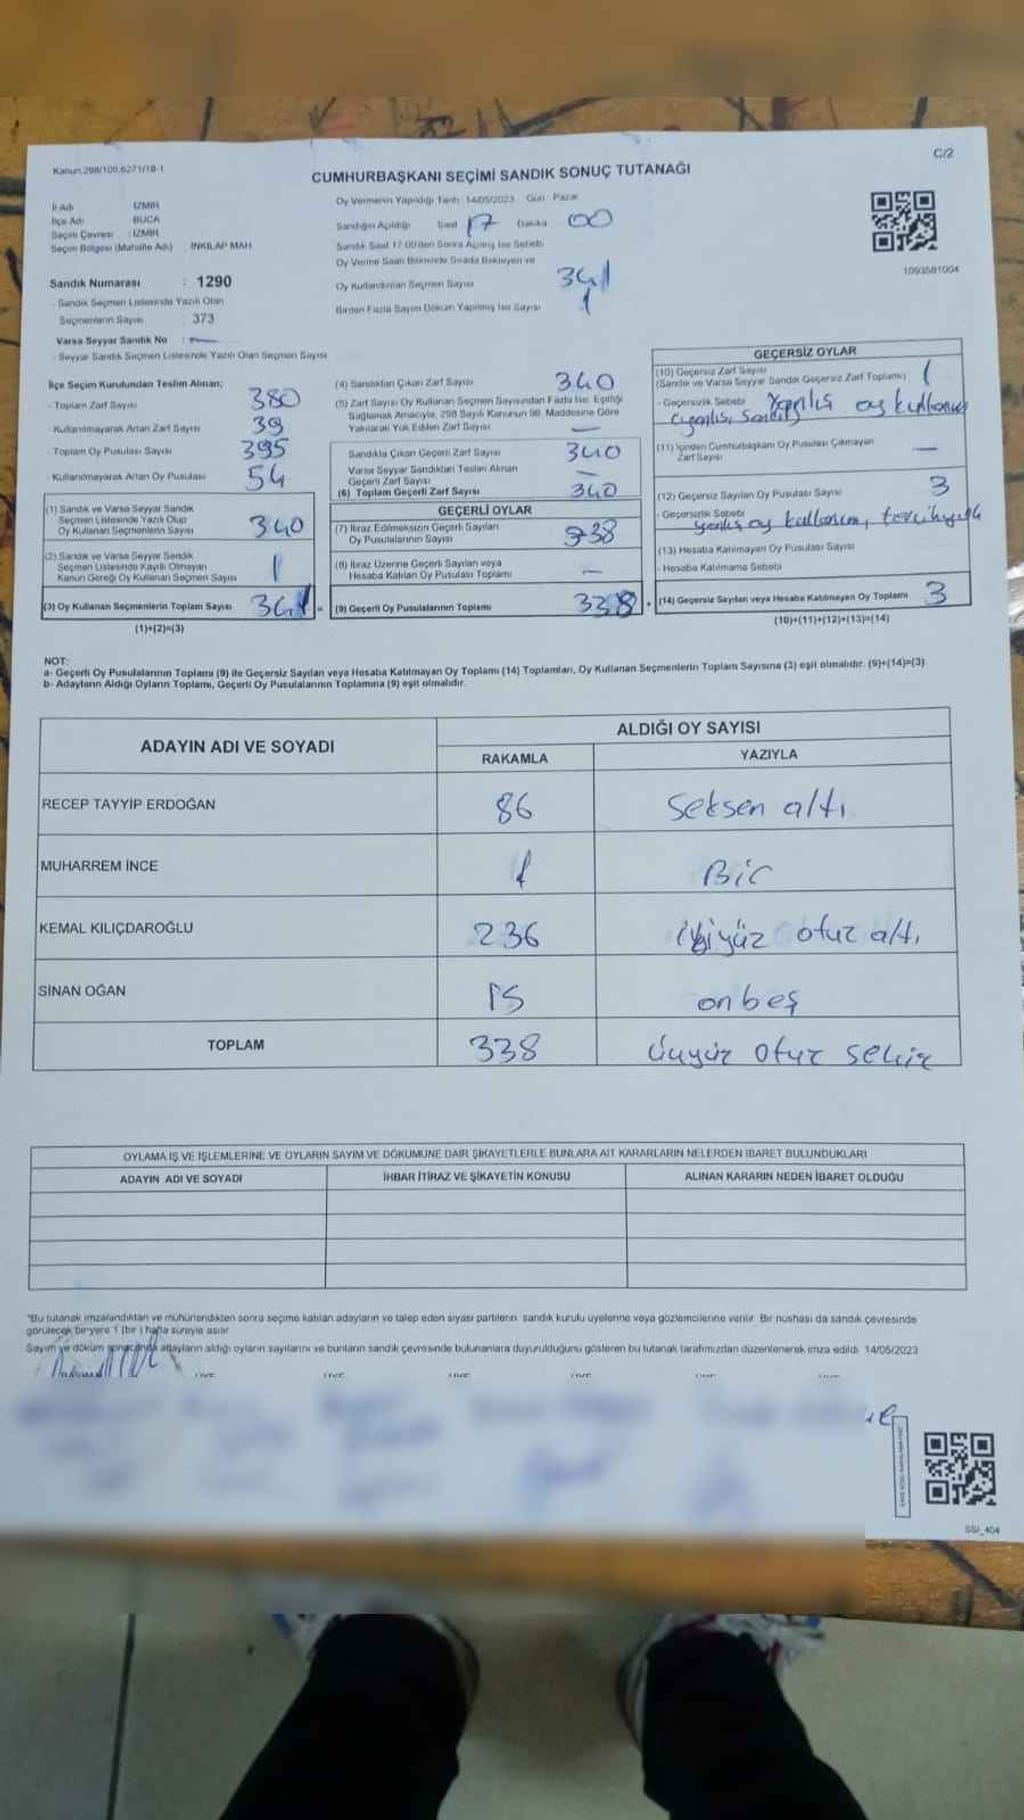 Kanun 298/106.6271/18-1
C/2
CUMHURBAŞKANI SEÇİMİ SANDIK SONUÇ TUTANAĞI
İl Adı İZMİR
İlçe Adı BUCA
Seçim Çevresi : İZMİR
Seçim Bölgesi (Mahalle Adı) İNKILAP MAH.
Oy Vermenin Yapıldığı Tarih 14/05/2023 Gün : Pazar
Sandığın Açıldığı Saat 17 Dakika 00
Sandık Saat 17:00'den Sonra Açılmış İse Sebebi
Oy Verme Saati Bitiminde Sırada Bekleyen ve
Oy Kullandırılan Seçmen Sayısı
341
Birden Fazla Sayım Döküm Yapılmış İse Sayısı 1
1093581004
Sandık Numarası : 1290
- Sandık Seçmen Listesinde Yazılı Olan
Seçmenlerin Sayısı : 373
Varsa Seyyar Sandık No : —
- Seyyar Sandık Seçmen Listesinde Yazılı Olan Seçmen Sayısı
İlçe Seçim Kurulundan Teslim Alınan;
- Toplam Zarf Sayısı 380
- Kullanılmayarak Artan Zarf Sayısı 39
- Toplam Oy Pusulası Sayısı 395
- Kullanılmayarak Artan Oy Pusulası 54
(1) Sandık ve Varsa Seyyar Sandık
Seçmen Listesinde Yazılı Olup
Oy Kullanan Seçmenlerin Sayısı 340
(2) Sandık ve Varsa Seyyar Sandık
Seçmen Listesinde Kayıtlı Olmayan
Kanun Gereği Oy Kullanan Seçmen Sayısı 1
(3) Oy Kullanan Seçmenlerin Toplam Sayısı 341 =
(1)+(2)=(3)
(4) Sandıktan Çıkan Zarf Sayısı 340
(5) Zarf Sayısı Oy Kullanan Seçmen Sayısından Fazla İse, Eşitliği
Sağlamak Amacıyla, 298 Sayılı Kanunun 98. Maddesine Göre
Yakılarak Yok Edilen Zarf Sayısı —
Sandıkta Çıkan Geçerli Zarf Sayısı 340
Varsa Seyyar Sandıktan Teslim Alınan
Geçerli Zarf Sayısı —
(6) Toplam Geçerli Zarf Sayısı 340
GEÇERLİ OYLAR
(7) İtiraz Edilmeksizin Geçerli Sayılan
Oy Pusulalarının Sayısı 338
(8) İtiraz Üzerine Geçerli Sayılan veya
Hesaba Katılan Oy Pusulası Toplamı —
(9) Geçerli Oy Pusulalarının Toplamı 338 +
GEÇERSİZ OYLAR
(10) Geçersiz Zarf Sayısı
(Sandık ve Varsa Seyyar Sandık Geçersiz Zarf Toplamı) 1
- Geçersizlik Sebebi oy
(11) İçinden Cumhurbaşkanı Oy Pusulası Çıkmayan
Zarf Sayısı —
(12) Geçersiz Sayılan Oy Pusulası Sayısı 3
- Geçersizlik Sebebi
yanlış oy kullanım,
(13) Hesaba Katılmayan Oy Pusulası Sayısı
- Hesaba Katılmama Sebebi
(14) Geçersiz Sayılan veya Hesaba Katılmayan Oy Toplamı 3
(10)+(11)+(12)+(13)=(14)
NOT:
a- Geçerli Oy Pusulalarının Toplamı (9) ile Geçersiz Sayılan veya Hesaba Katılmayan Oy Toplamı (14) Toplamları, Oy Kullanan Seçmenlerin Toplam Sayısına (3) eşit olmalıdır. (9)+(14)=(3)
b- Adayların Aldığı Oyların Toplamı, Geçerli Oy Pusulalarının Toplamına (9) eşit olmalıdır.
ADAYIN ADI VE SOYADI
ALDIĞI OY SAYISI
RAKAMLA YAZIYLA
RECEP TAYYİP ERDOĞAN 86 Seksen altı
MUHARREM İNCE 1 Bir
KEMAL KILIÇDAROĞLU 236 ikiyüz otuz altı
SİNAN OĞAN 15 onbeş
TOPLAM 338 Üçyüz otuz sekiz
OYLAMA İŞ VE İŞLEMLERİNE VE OYLARIN SAYIM VE DÖKÜMÜNE DAİR ŞİKAYETLERLE BUNLARA AİT KARARLARIN NELERDEN İBARET BULUNDUKLARI
ADAYIN ADI VE SOYADI İHBAR İTİRAZ VE ŞİKAYETİN KONUSU ALINAN KARARIN NEDEN İBARET OLDUĞU
*Bu tutanak imzalandıktan ve mühürlendikten sonra seçime katılan adayların ve talep eden siyasi partilerin sandık kurulu üyelerine veya gözlemcilerine verilir. Bir nüshası da sandık çevresinde
görülecek bir yere 1 (bir ) hafta süreyle asılır
Sayım ve döküm sonucunda adayların aldığı oyların sayılarını ve bunların sandık çevresinde bulunanlara duyurulduğunu gösteren bu tutanak tarafımızdan düzenlenerek imza edildi. 14/05/2023
SSI_404